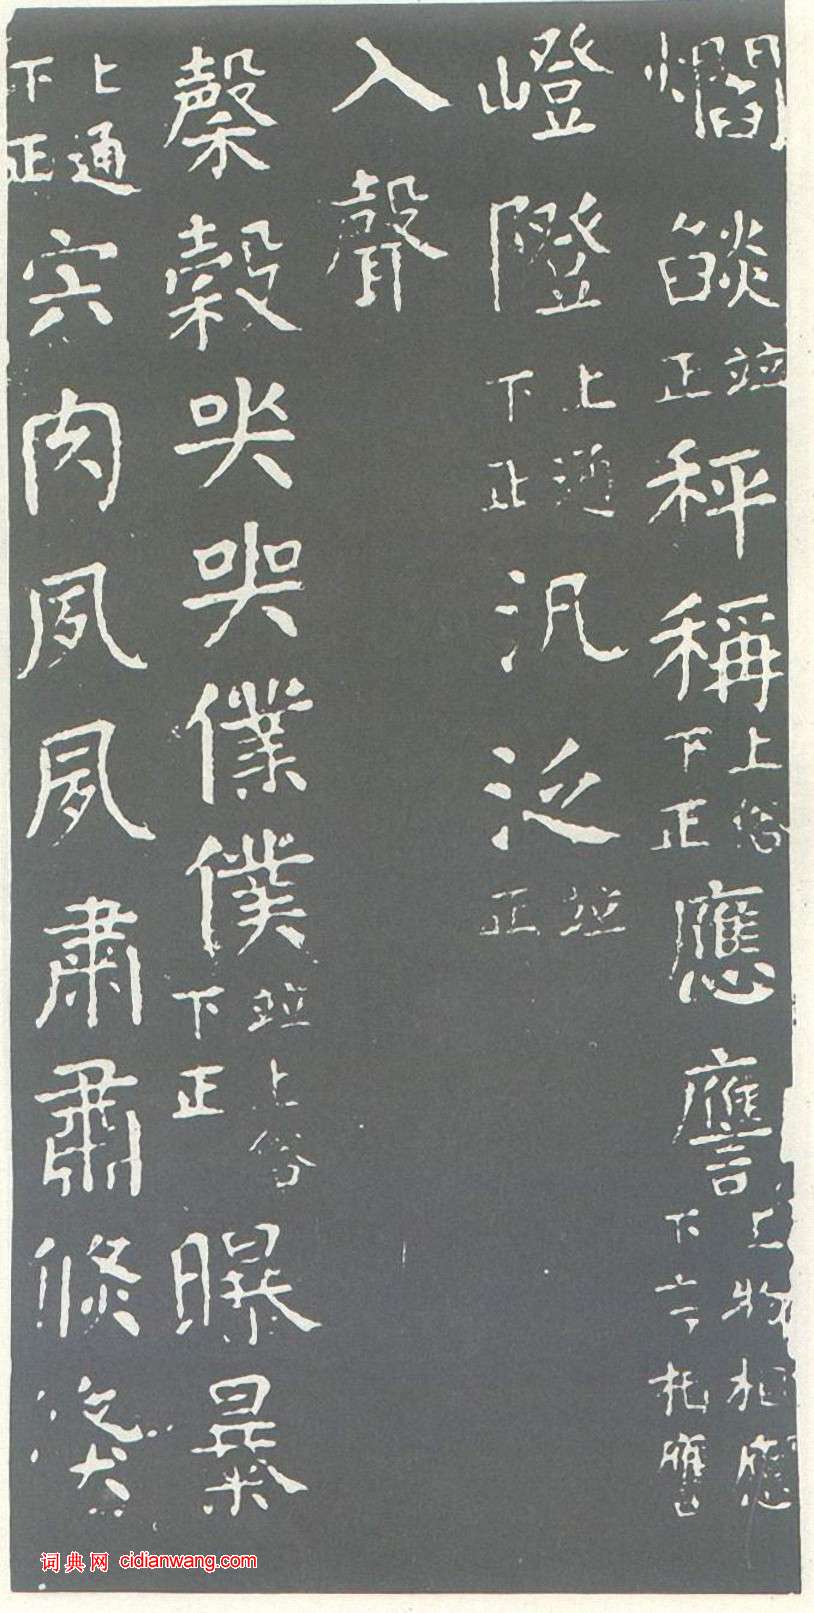 爓燄並正秤稱上俗下正應譍上物相應下言相譍
嶝隥上通下正汎泛並正
入聲
糓穀𡘜哭僕僕並上俗下正曝暴
上通下正宍肉夙夙肅肅倐
词典网 cidianwang.com